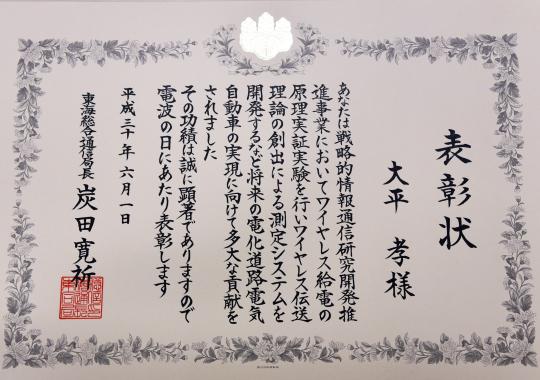 表彰状
大平 孝様
あなたは戦略的情報通信研究開発推
進事業においてワイヤレス給電の
原理実証実験を行いワイヤレス伝送
理論の創出による測定システムを
開発するなど将来の電化道路電気
自動車の実現に向けて多大な貢献を
されました
その功績は誠に顕著でありますので
電波の日にあたり表彰します
平成三十年六月一日
東海総合通信局長 炭田寛祈